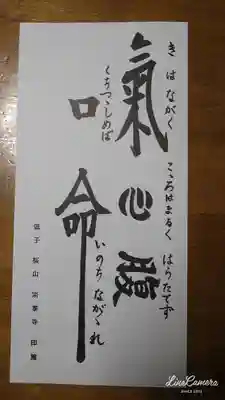 きはながく
こころはまるく
はらたてず
氣心腹
くちつつしめば
いのちながかれ
口命
逗子 桜山 宗泰寺
LineCamera